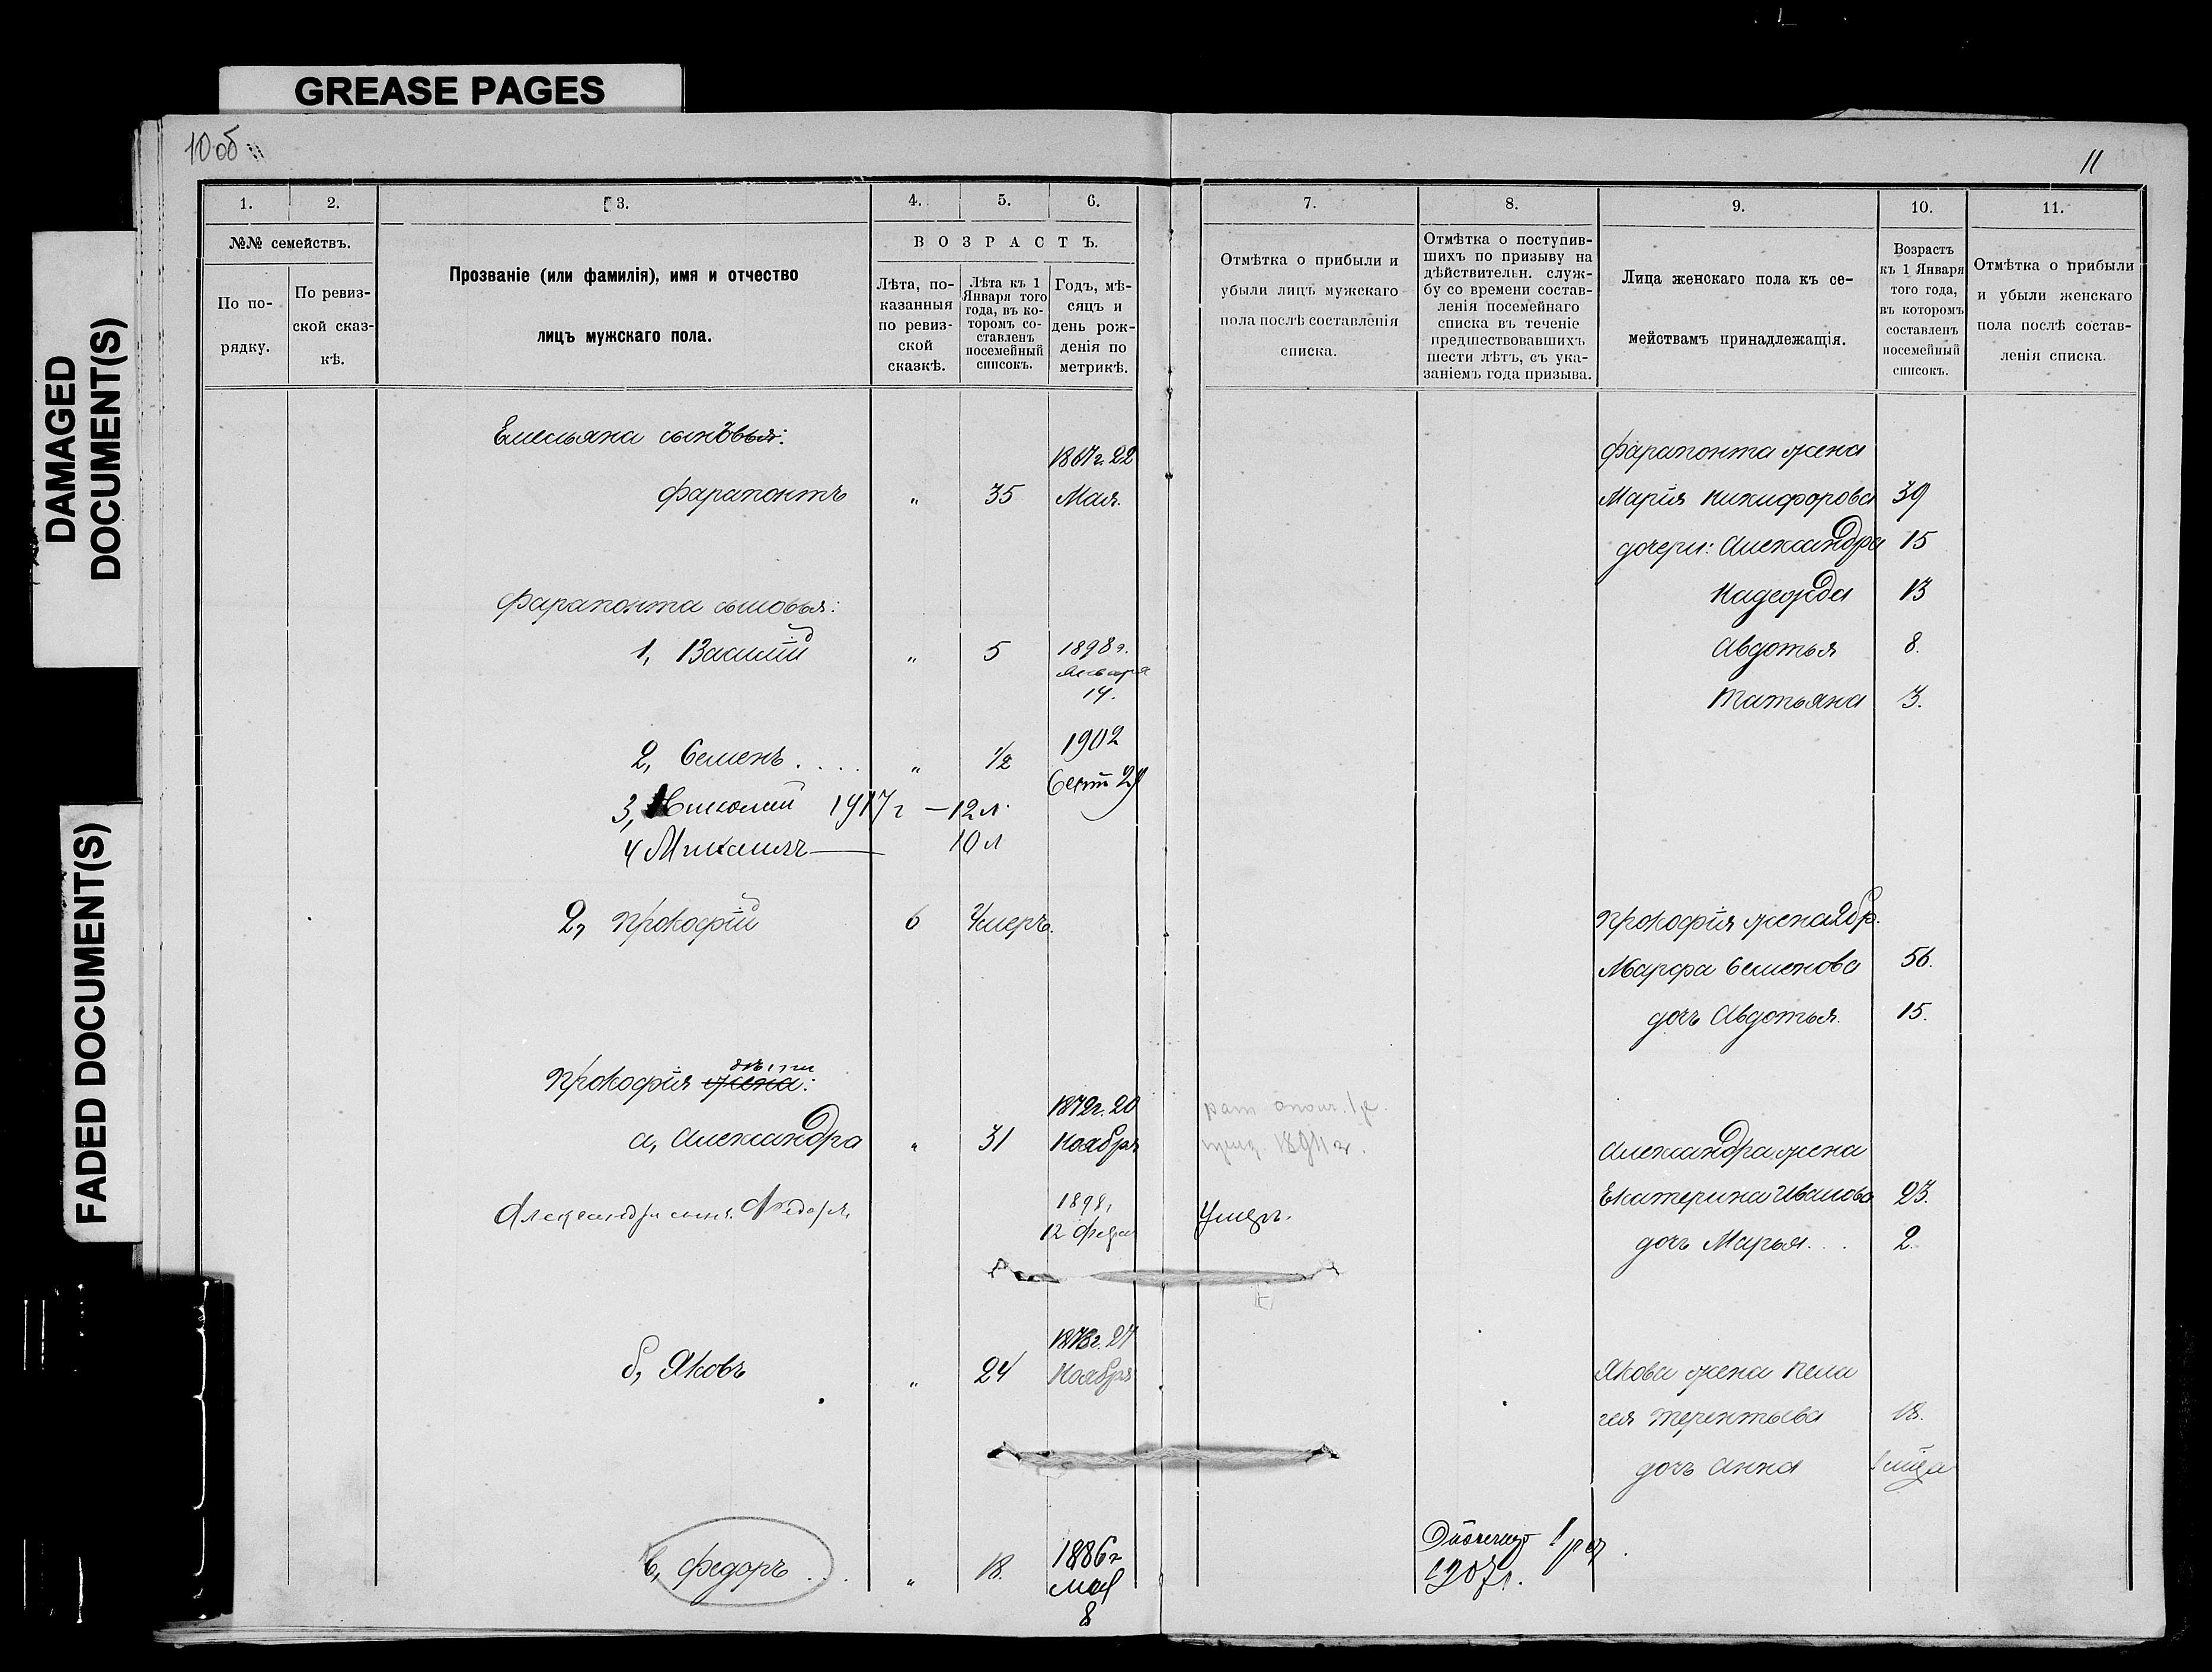 GREASE PAGES
DAMAGED
DOCUMENT(S)
FADED DOCUMENT(S)
10 об
1. 2. 3. 4. 5. 6.
№№ семействъ.
По по-
рядку.
По ревиз-
ской сказ-
кѣ.
Прозваніе (или фамилія), имя и отчество
лицъ мужскаго пола.
ВОЗРАСТЪ.
Лѣта, по-
казанныя
по ревиз-
ской
сказкѣ.
Лѣта къ 1
Января того
года, въ ко-
торомъ со-
ставленъ
посемейный
списокъ.
Годъ, мѣ-
сяцъ и
день рож-
денія по
метрикѣ.
Емельяна сыновья:
1867г. 22
Фарапонтъ " 35 Мая.
Фарапонта сыновья:
1, Василій " 5 1898г.
Января
14.
2, Семенъ.... " 1/2 1902
Сент 29
3, Николай 1917 г — 12 л.
4 Михаилъ — 10 л
2, Прокофій 6 Умеръ.
дѣти
Прокофія жена:
1872г. 20
а, Александра " 31 Ноября
Александра сынъ Федоръ, 1898,
12 Февр
1878г. 27
б, Яковъ " 24 Ноября
в, Федоръ ... " 18. 1886г
мая
8
11
7. 8. 9. 10. 11.
Отмѣтка о прибыли и
убыли лицъ мужскаго
пола послѣ составленія
списка.
Отмѣтка о поступив-
шихъ по призыву на
дѣйствительн. служ-
бу со времени состав-
ленія посемейнаго
списка въ теченіе
предшествовавшихъ
шести лѣтъ, съ ука-
заніемъ года призыва.
Лица женскаго пола къ се-
мействамъ принадлежащія.
Возрастъ
къ 1 Января
того года,
въ которомъ
составленъ
посемейный
списокъ.
Отмѣтка о прибыли
и убыли женскаго
пола послѣ состав-
ленія списка.
Фарапонта жена
Марія Никифорова 39
дочери: Александра 15
Надежда 13
Авдотья 8.
Татьяна 3.
Прокофія жена 2 бр.
Марфа Семенова 56.
дочь Авдотья. 15.
1894 г.
Александра жена
Екатерина Иванова 23.
дочь Марья... 2.
Умеръ.
Якова жена Пела
гея Терентьева 18.
дочь Анна
1 раз
1907г.